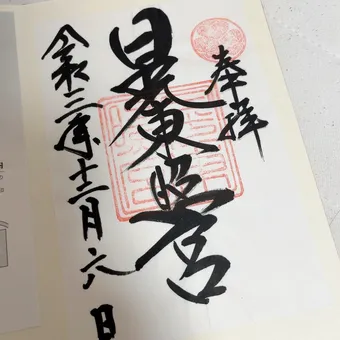 奉拝
日光東照宮
令和三年十二月六日